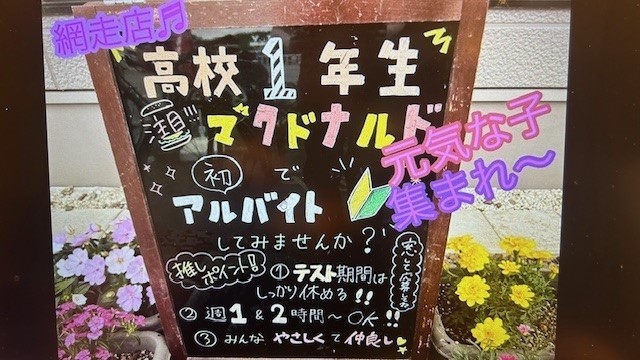 網走店♬
高校1年生
注目!!!
マクドナルド
元気な子
集まれ〜
初で
アルバイト
してみませんか?
推しポイント!
①テスト期間は
しっかり休める!!
②週1&2時間〜OK!!
③みんなやさしくて仲良し